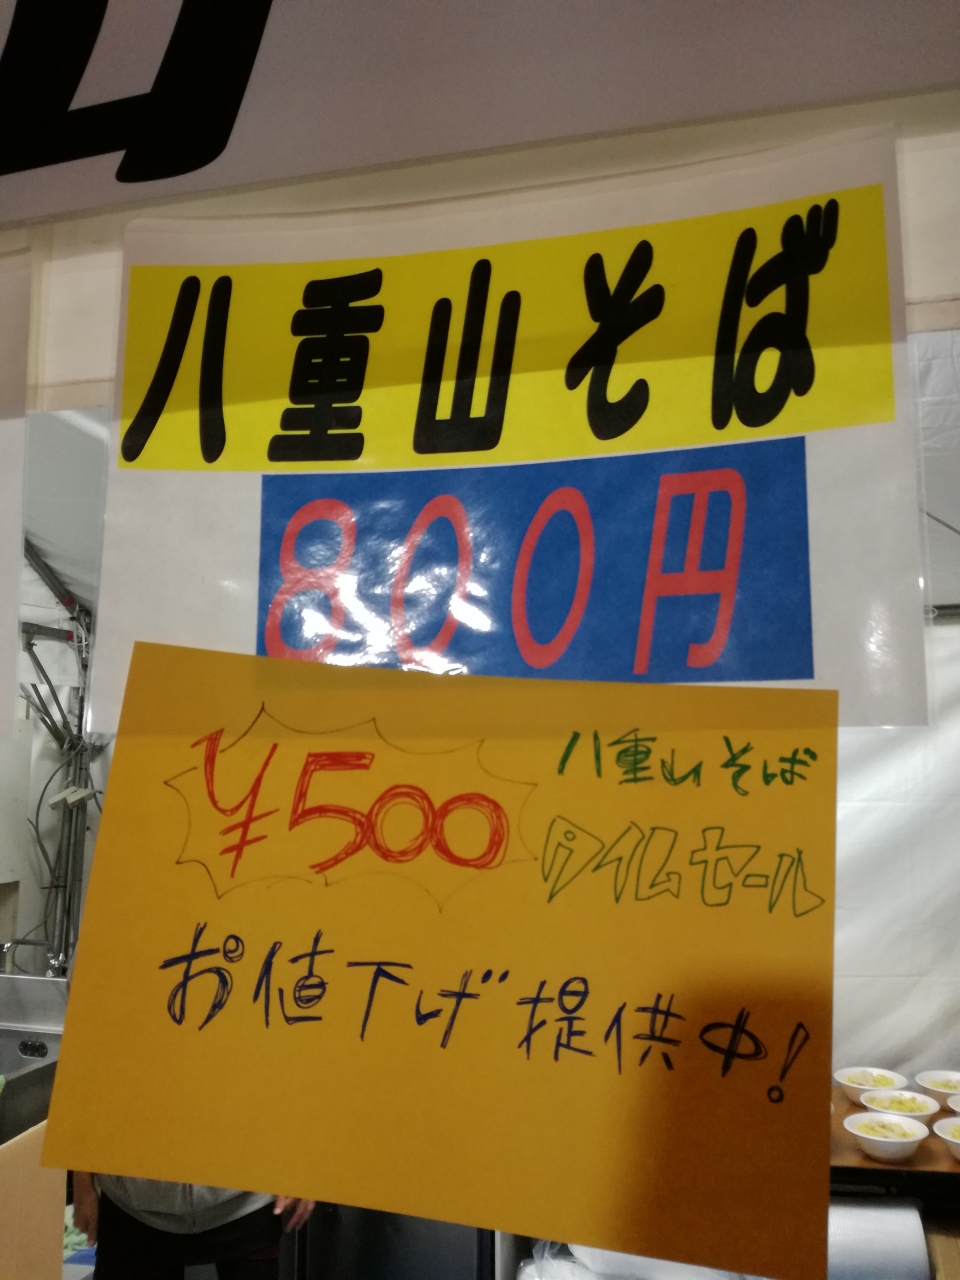 山
八重山そば
800円
¥500
八重山そば
タイムセール
お値下げ提供中!